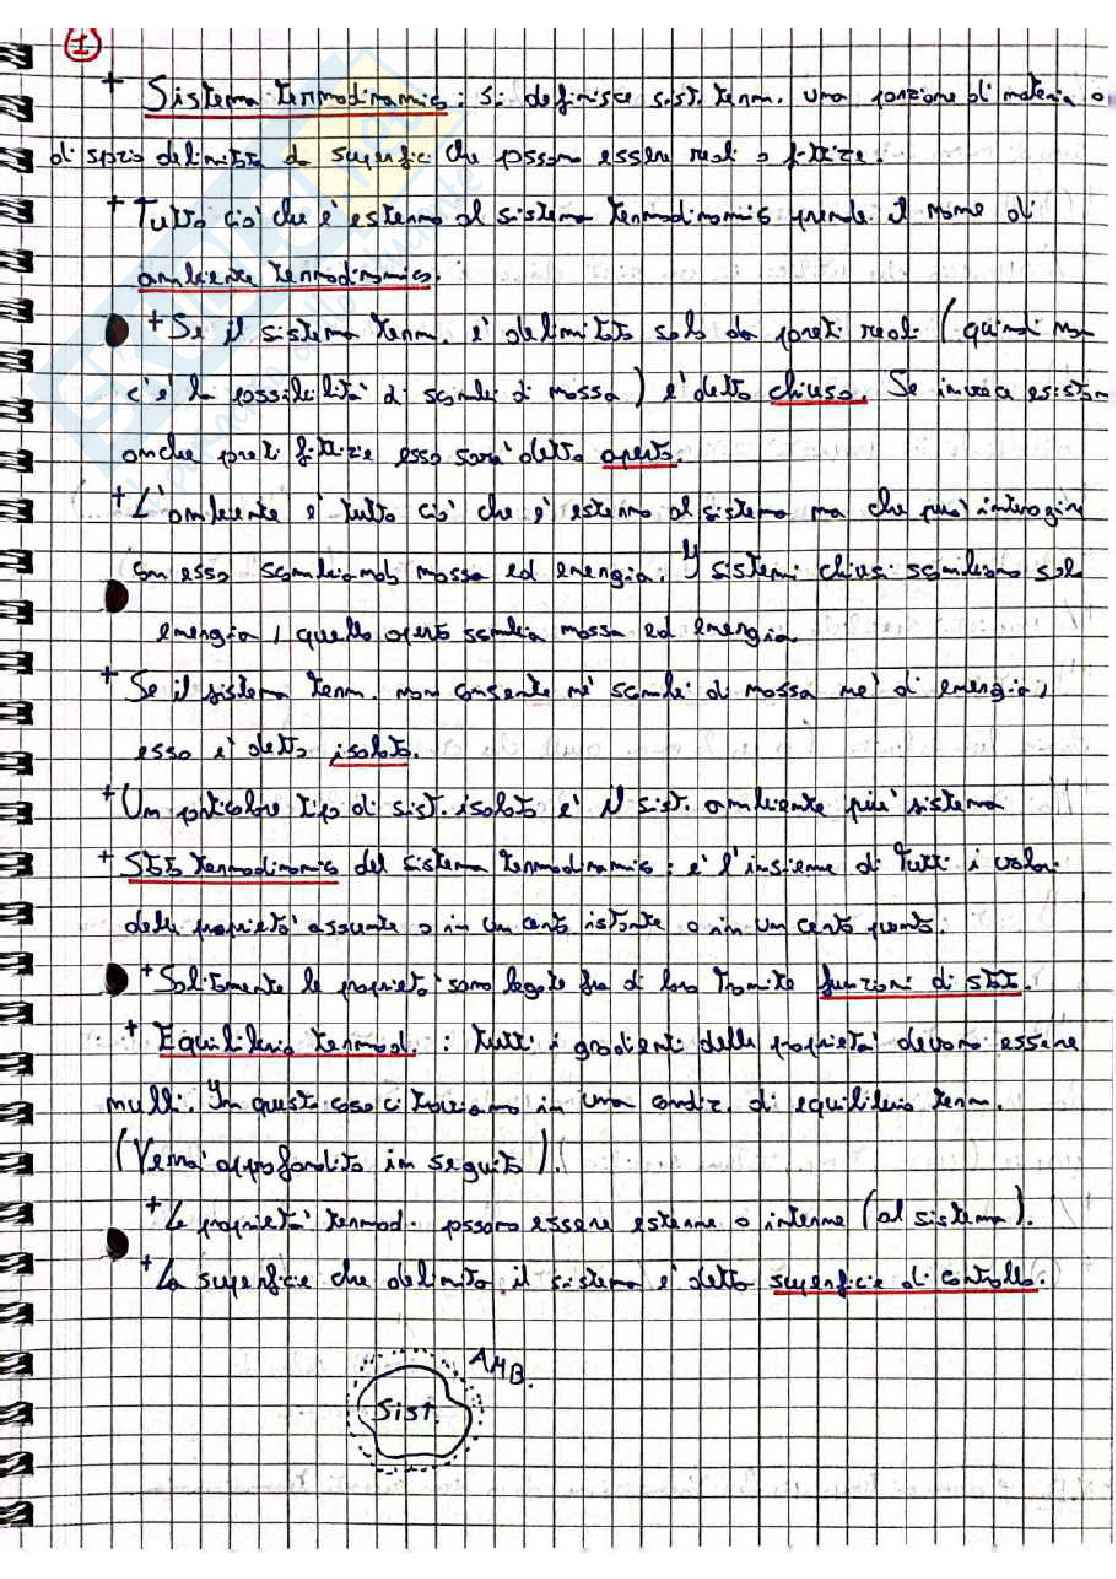 1
+ Sistema termodinamico: si definisce sist. term. una porzione di materia o
di spazio delimitata da superfici che possono essere reali o fittizie.
+ Tutto ciò che è esterno al sistema termodinamico prende il nome di
ambiente termodinamico.
+ Se il sistema term. è delimitato solo da pareti reali (quindi non
c'è la possibilità di scambi di massa) è detto chiuso. Se invece esistono
anche pareti fittizie esso sarà detto aperto.
+ L'ambiente è tutto ciò che è esterno al sistema ma che può interagire
con esso scambiando massa ed energia. I sistemi chiusi scambiano solo
energia, quello aperto scambia massa ed energia.
+ Se il sistema term. non consente né scambi di massa né di energia,
esso è detto isolato.
+ Un particolare tipo di sist. isolato è il sist. ambiente più sistema
+ Stato termodinamico del sistema termodinamico: è l'insieme di tutti i valori
delle proprietà assunte o in un certo istante o in un certo punto.
+ Solitamente le proprietà sono legate fra di loro tramite funzioni di stato.
+ Equilibrio termod.: tutti i gradienti delle proprietà devono essere
nulli. In questo caso ci troviamo in una condiz. di equilibrio term.
(Verrà approfondito in seguito).
+ Le proprietà termod. possono essere esterne o interne (al sistema).
+ La superficie che delimita il sistema è detta superficie di controllo.
AMB.
Sist.